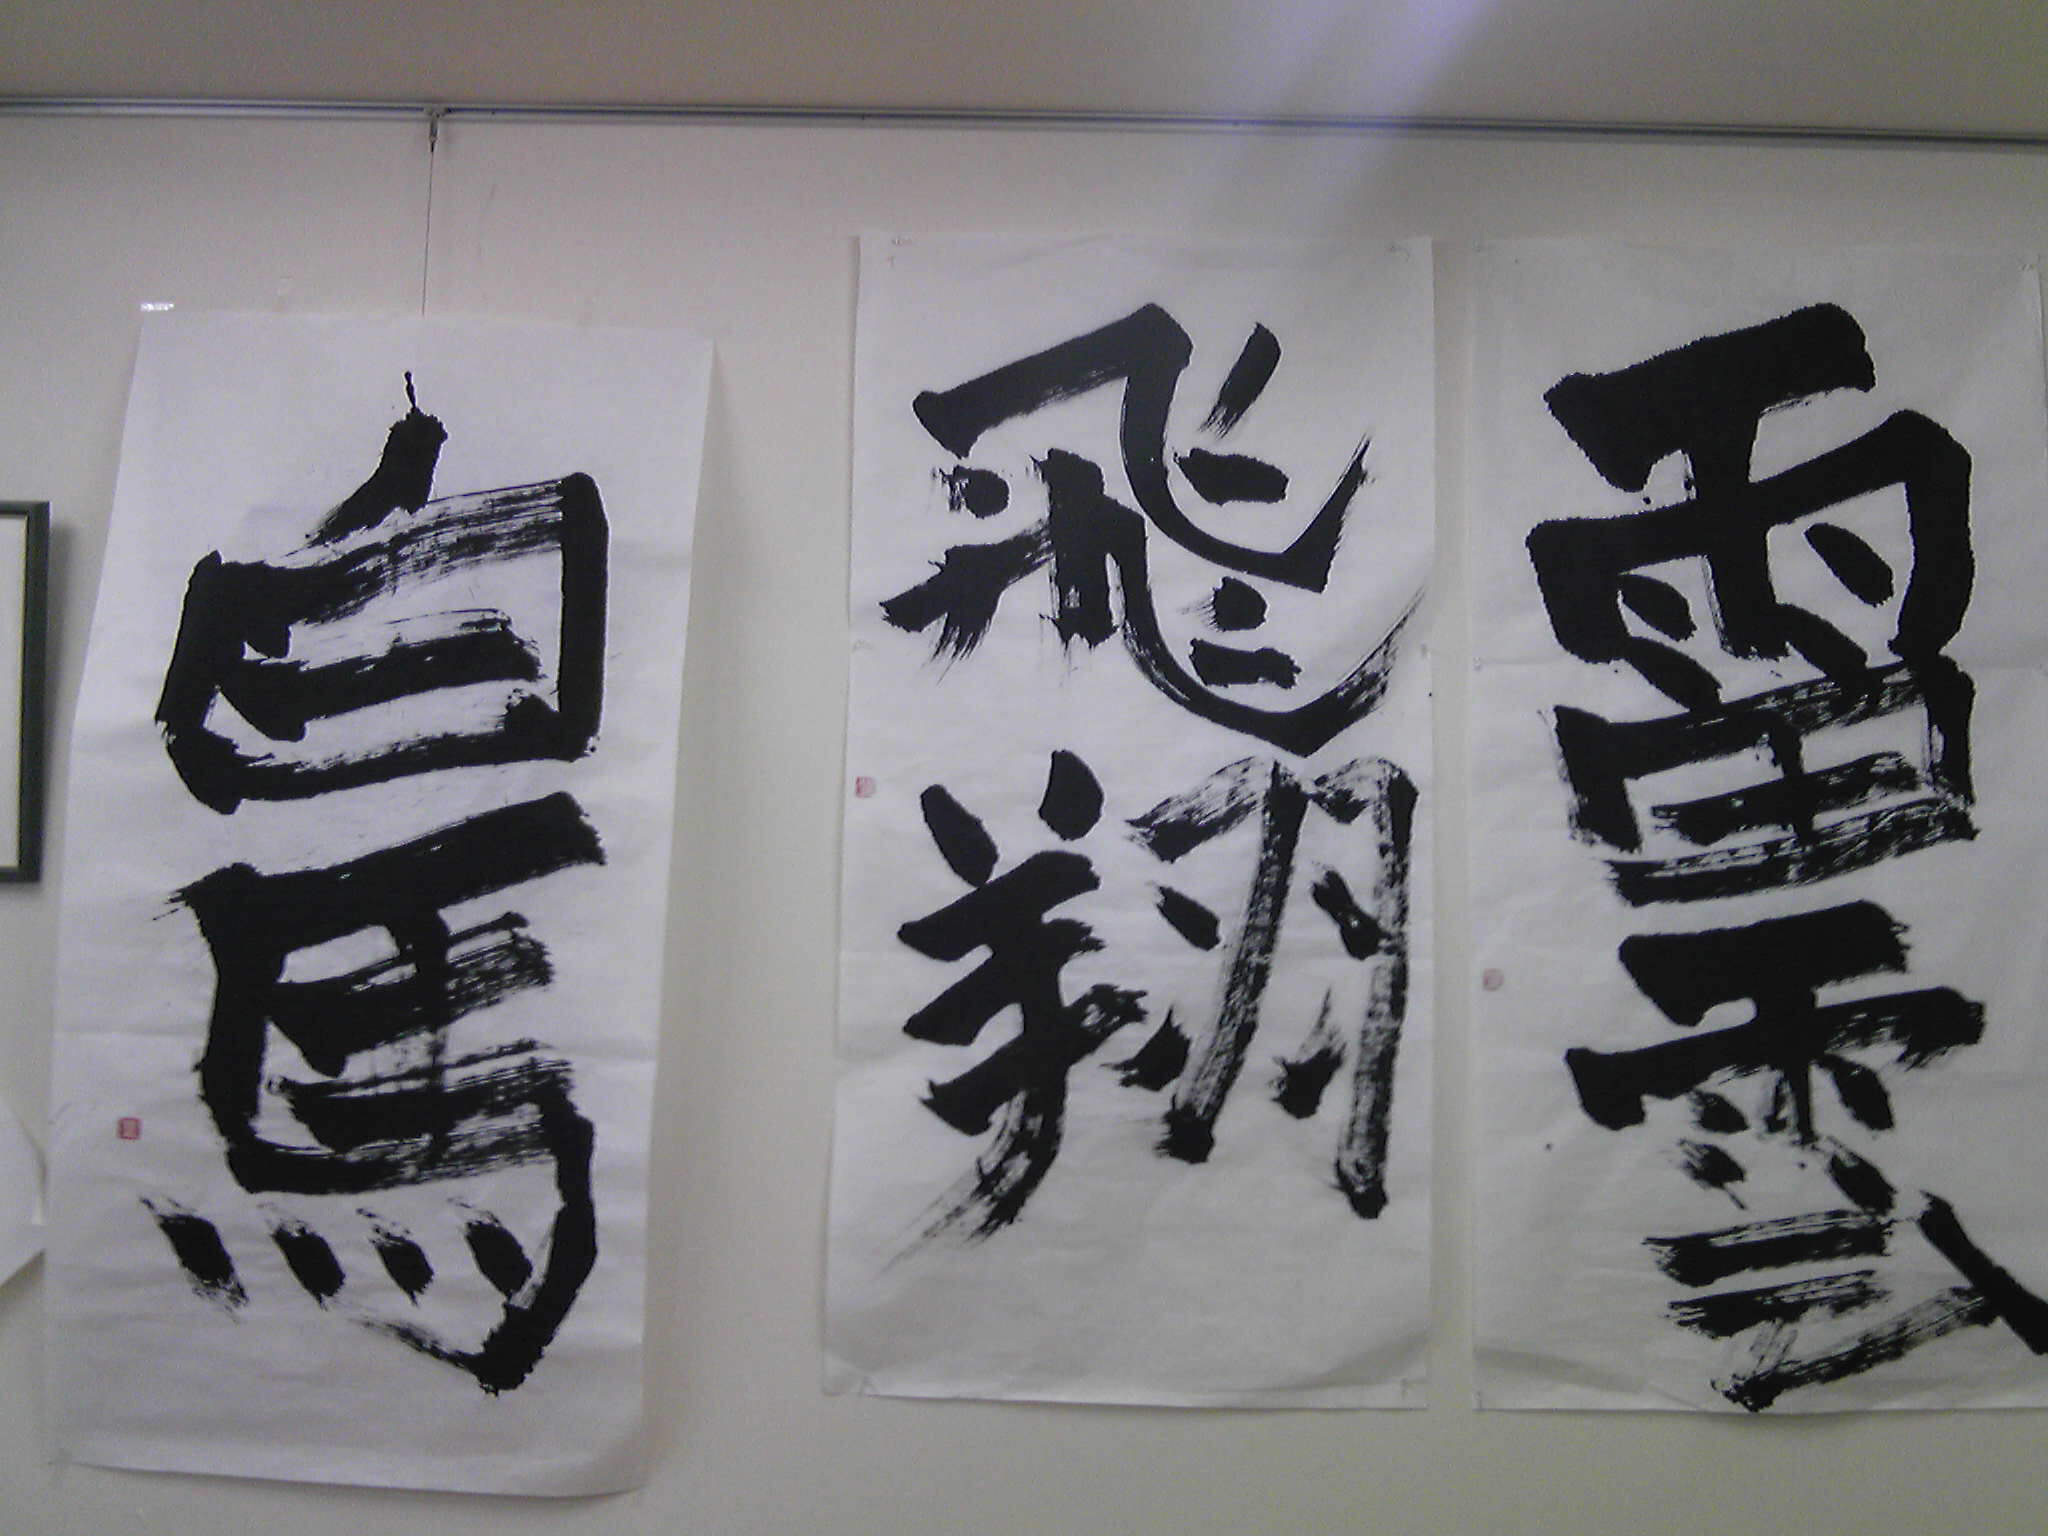 雷雲
飛翔
白馬